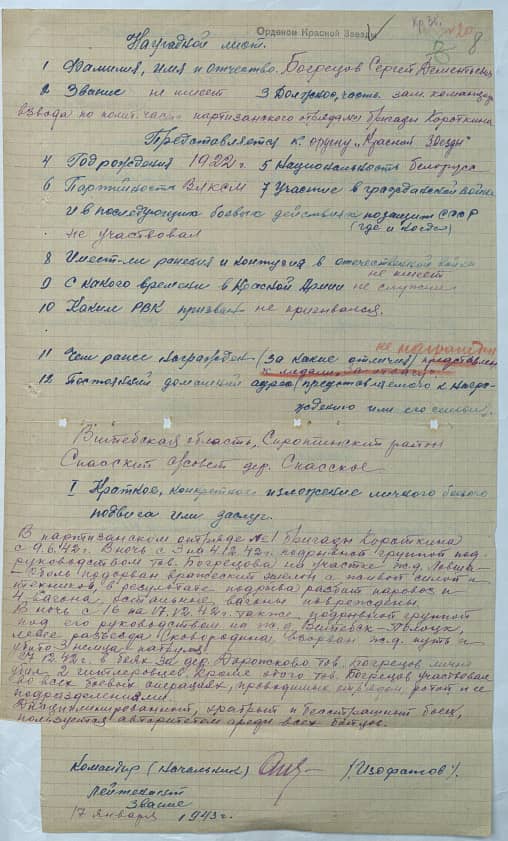 Орденом Красной Звезды
8
Наградной лист.
1 Фамилия, имя и отчество Богрецов Сергей
2 Звание не имеет 3 Должность, часть зам. командира
взвода по полит. части партизанского отряда №1 бригады Короткина
Представляется к ордену „Красной Звезды"
4 Год рождения 1922 г. 5 Национальность белорусс
6 Партийность ВЛКСМ 7 Участие в гражданской войне
и в последующих боевых действиях по защите СССР
(где и когда)
не участвовал
8 Имеет-ли ранения и контузия в отечественной войне
не имеет
9 С какого времени в Красной Армии не служил
10 Каким РВК призван не призывался.
не награжден
11 Чем ранее награжден (за какие отличия) представлен
к медали
12 Постоянный домашний адрес (представляемого к награ-
ждению или его семьи).
Витебская область, Сиротинский район
Спасский с/совет дер. Спасское
I Краткое, конкретное изложение личного боевого
подвига или заслуг.
В партизанском отряде №1 бригады Короткина
с 9.6.42 г. В ночь с 3 на 4.12.42 г. подрывной группой под
руководством тов. Богрецова на участке ж.д.
подорван вражеский эшелон с живой силой и
техникой, в результате подрыва разбит паровоз и
4 вагона, остальные вагоны повреждены.
В ночь с 16 на 17.12.42 г. также подрывной группой
под его руководством на ж.д. Витебск-Полоцк,
левее разъезда Сковородина взорван ж.д. путь и
убито 3 немца
27.12.42 г. в боях за дер. тов. Богрецов лично
убил 2 гитлеровцев. Кроме этого тов. Богрецов участвовал
во всех боевых операциях, проводимых отрядом, ротой и ее
подразделениями.
Дисциплинированный, храбрый и бесстрашный боец,
пользуется авторитетом среди всех бойцов.
Командир (начальник) /Изофатов/.
лейтенант
звание
17 января 1943 г.